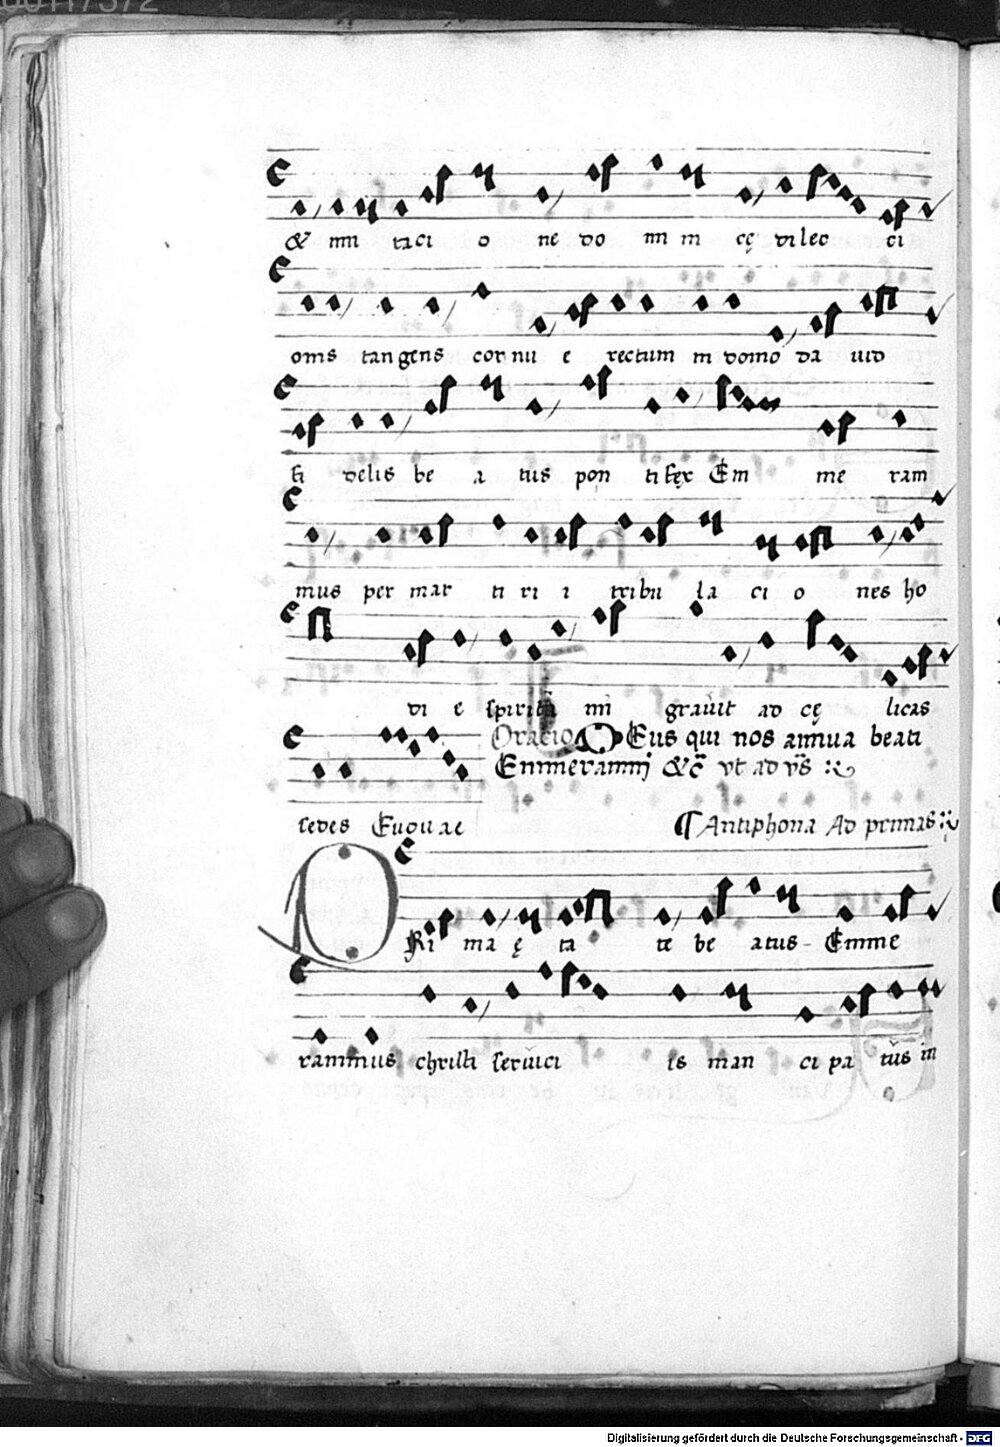 & imi taci o ne do mi ni cę dilec ci
onis tangens cornu e rectum in domo da uid
fi delis be a tus pon tifex Em me ram
mus per mar ti ri i tribu la ci o nes ho
di e spiritu mi grauit ad cę licas
Oracio DEus qui nos annua beati
Emmerammi &c̄ vt ad vs̄
sedes Euouae
¶ Antiphona Ad primas
PRi ma ę ta te be atus Emme
rammus christi serui ci is man ci pa tus in
Digitalisierung gefördert durch die Deutsche Forschungsgemeinschaft - DFG